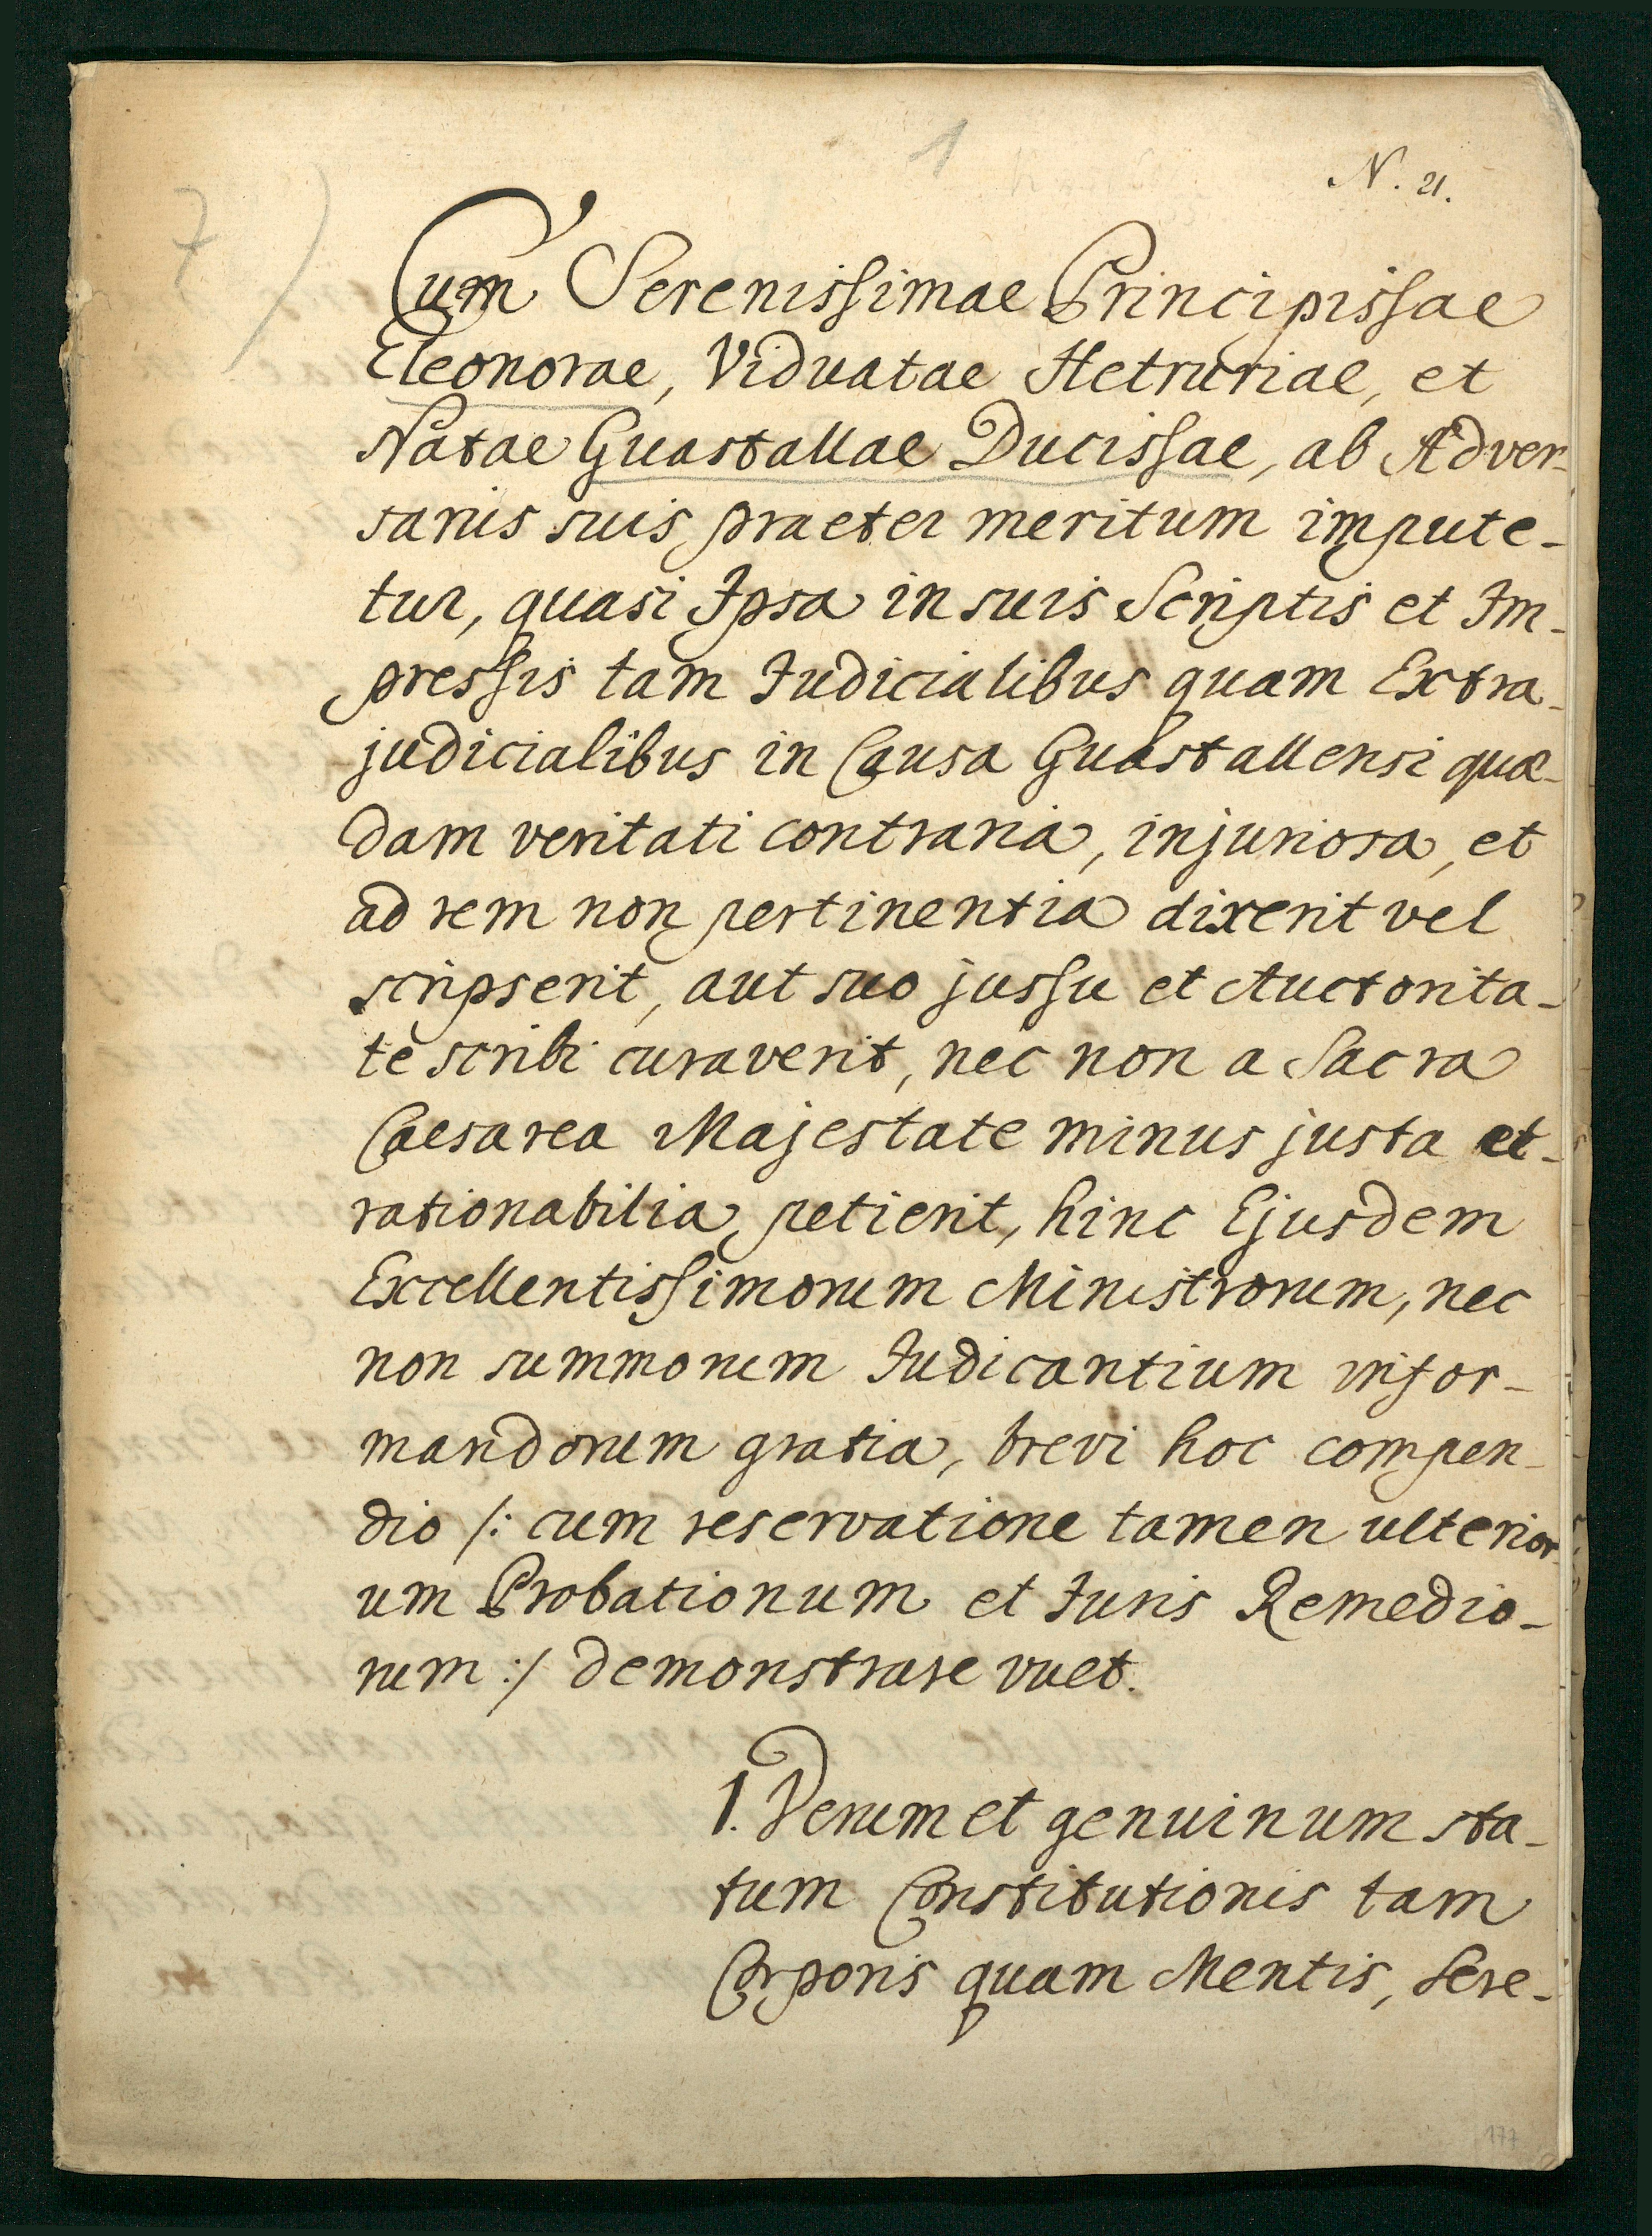 1
N. 21.
7)
Cum Serenissimae Principissae
Eleonorae, Viduatae Hetruriae, et
Natae Guastallae Ducissae, ab Adver-
sariis suis praeter meritum impute-
tur, quasi Ipsa in suis Scriptis et Im-
pressis tam Judicialibus quam Extra-
judicialibus in Causa Guastallensi quae-
dam veritati contraria, injuriosa, et
ad rem non pertinentia dixerit vel
scripserit, aut suo jussu et Auctorita-
te scribi curaverit, nec non a Sacra
Caesarea Majestate minus justa et
rationabilia petierit, hinc Ejusdem
Excellentissimorum Ministrorum, nec
non summorum Judicantium infor-
mandorum gratia, brevi hoc compen-
dio /: cum reservatione tamen ulterior-
um Probationum et Juris Remedio-
rum :/ demonstrare vult.
1. Verum et genuinum sta-
tum Constitutionis tam
Corporis quam Mentis, Sere-
177